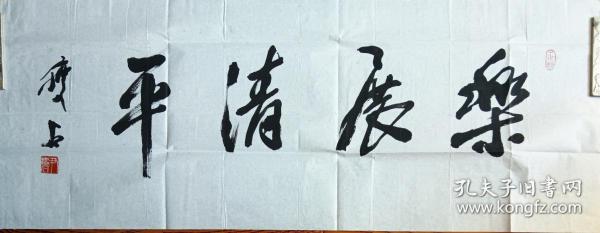 樂展清平
瘦石
孔夫子旧书网
www.kongfz.com